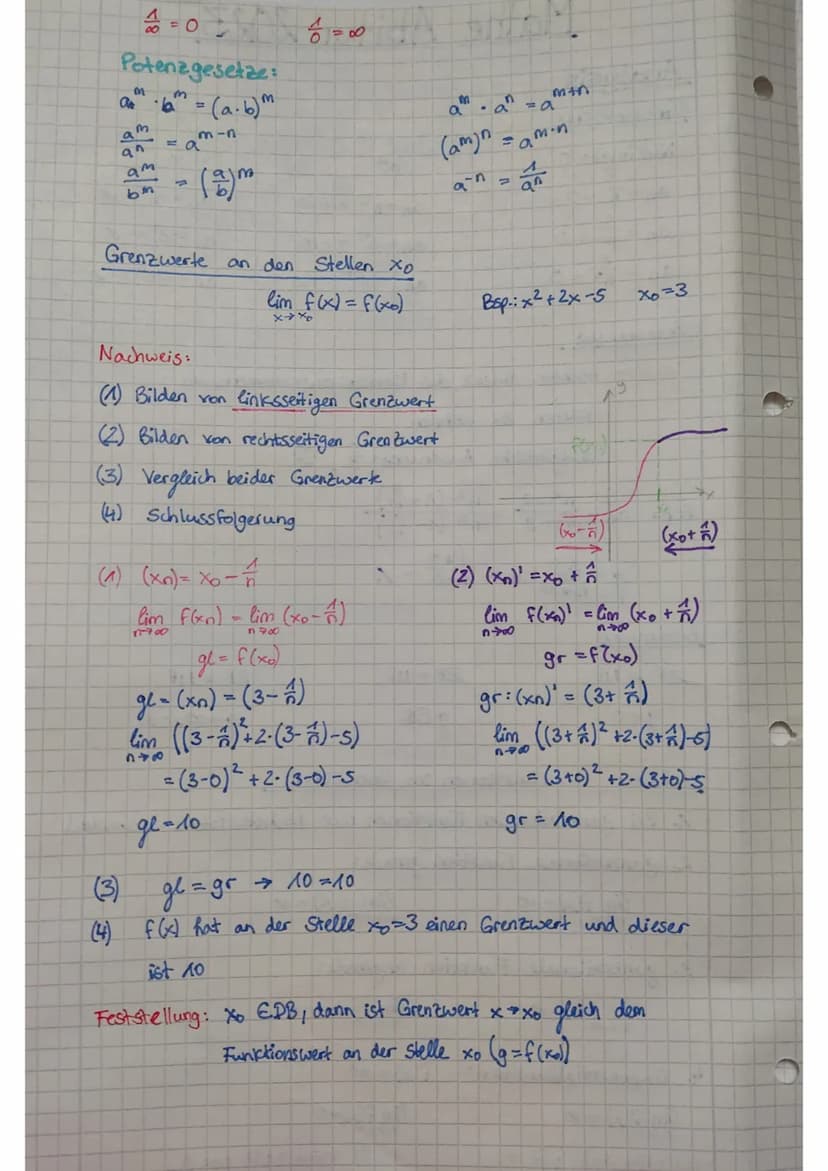 1/∞ = 0    1/0 = ∞
Potenzgesetze:
a^m · b^m = (a·b)^m    a^m · a^n = a^(m+n)
a^m/a^n = a^(m-n)    (a^m)^n = a^(m·n)
a^m/b^m = (a/b)^m    a^(-n) = 1/a^n
Grenzwerte an den Stellen x₀
lim x→x₀ f(x) = f(x₀)    Bsp.: x² + 2x - 5    x₀ = 3
Nachweis:
(1) Bilden von linksseitigen Grenzwert
(2) Bilden von rechtsseitigen Grenzwert
(3) Vergleich beider Grenzwerte
(4) Schlussfolgerung
y
x
(x₀ - 1/n)    (x₀ + 1/n)
(1) (xn) = x₀ - 1/n    (2) (xn)' = x₀ + 1/n
lim n→∞ f(xn) = lim n→∞ (x₀ - 1/n)    lim n→∞ f(xn)' = lim n→∞ (x₀ + 1/n)
gl = f(x₀)    gr = f(x₀)
gl = (xn) = (3 - 1/n)    gr: (xn)' = (3 + 1/n)
lim n→∞ ((3 - 1/n)² + 2·(3 - 1/n) - 5)    lim n→∞ ((3 + 1/n)² + 2·(3 + 1/n) - 5)
= (3-0)² + 2·(3-0) - 5    = (3+0)² + 2·(3+0) - 5
gl = 10    gr = 10
(3) gl = gr → 10 = 10
(4) f(x) hat an der Stelle x₀=3 einen Grenzwert und dieser
ist 10
Feststellung: x₀ ∈ DB, dann ist Grenzwert x→x₀ gleich dem
Funktionswert an der Stelle x₀ (g = f(x₀))